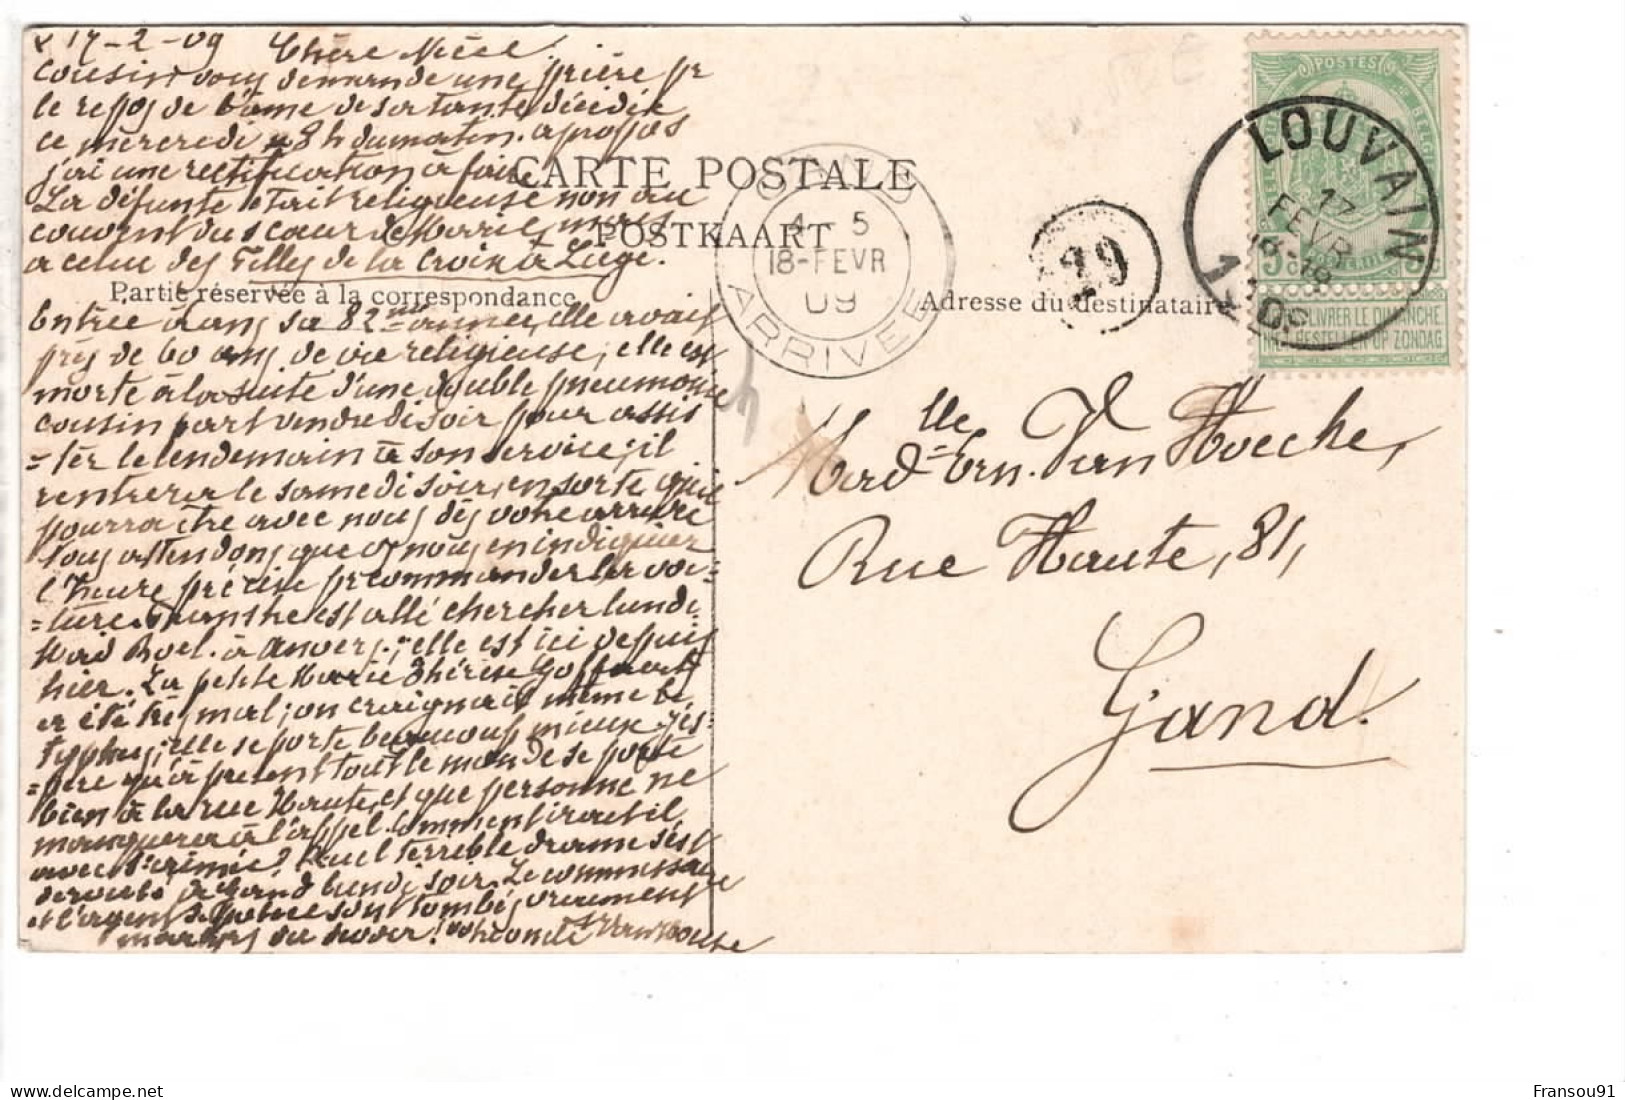 17-2-09 Chère Nièce
cousin vous demande une prière pr
le repos de l'âme de sa tante décédée
ce mercredi à 8 h du matin. à propos
j'ai une rectification à faire
La défunte était religieuse non au
couvent du s cœur de Marie, mais
a celui des Filles de la Croix à Liège.
CARTE POSTALE
POSTKAART
Partie réservée à la correspondance
Adresse du destinataire
Entrée dans sa 82me année, elle avait
près de 60 ans de vie religieuse; elle est
morte à la suite d'une double pneumonie
cousin part vendredi soir pour assis
=ter le lendemain à son service; il
rentrera le samedi soir, en sorte qu'il
pourra être avec nous dès votre arrivée
nous en indiquier
l'heure précise pr commander la voi=
=ture. est allé chercher lundi
Mad Roel. à Anvers; elle est ici depuis
hier. La petite Marie Thérèse Goffaerts
a été très mal; on craignait même le
typhus; elle se porte beaucoup mieux. J'es=
=père qu'à présent tout le monde se porte
bien à la rue Haute, et que personne ne
manquera à l'appel. Comment ira-t-il
avec Quel terrible drame s'est
déroulé à Gand lundi soir. Le commissaire
et l'agent de police sont tombés vraiment
martyrs du devoir!
GAND
4 5
18-FEVR
09
ARRIVEE
29
LOUVAIN
17
FEVR
18-19
09
POSTES
5 c
NE PAS LIVRER LE DIMANCHE
NIET BESTELLEN OP ZONDAG
Madlle Ern. Van Hoecke,
Rue Haute, 81,
Gand.
Fransou91